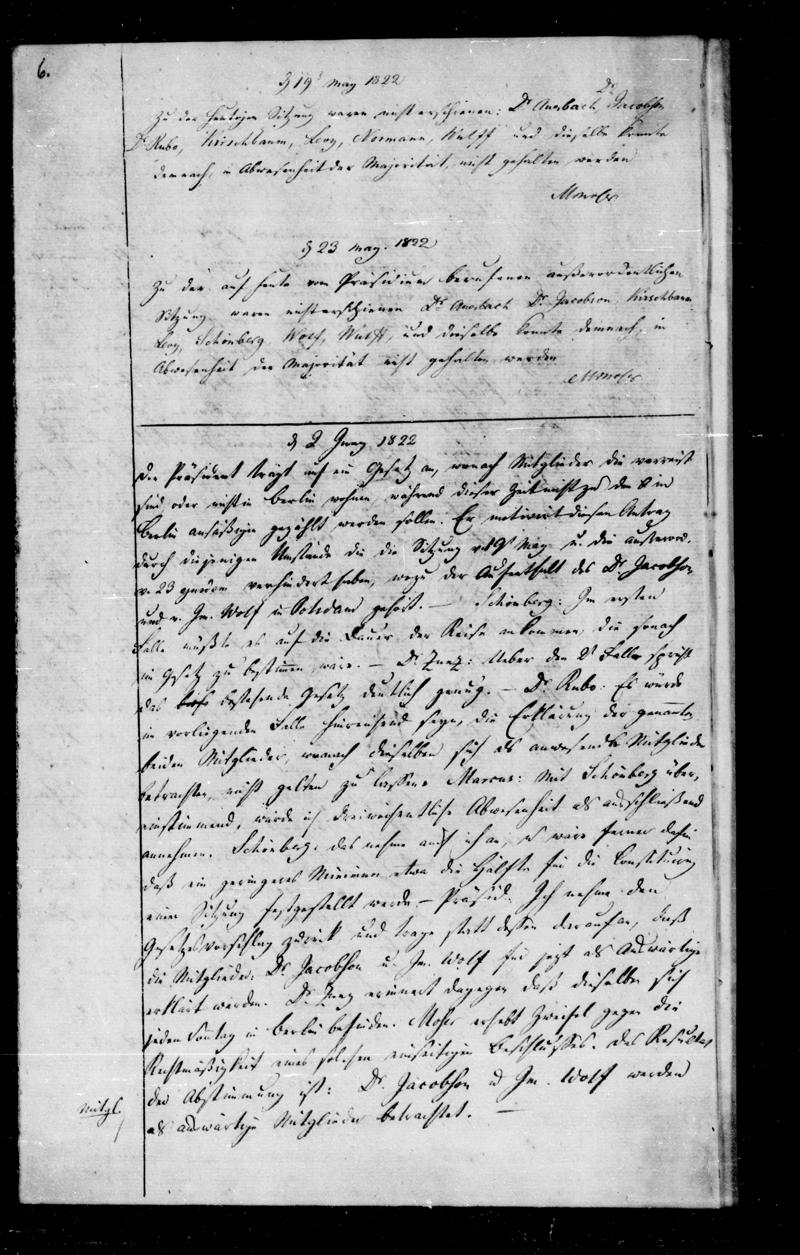 6.
§ 19t May 1822
Zu der heutigen Sitzung waren nicht erschienen: Dr Auerbach, Dr Jacobson
Dr Rubo, Kirschbaum, Levy, Normann, Wulff und dieselbe konnte
demnach, in Abwesenheit der Majorität, nicht gehalten werden
Moser
§ 23 May. 1822
Zu der auf heute vom Präsidium berufenen außerordentlichen
Sitzung waren nicht erschienen Dr Auerbach Dr Jacobson, Kirschbaum
Levy, Schönberg, Wolf, Wulff, und dieselbe konnte demnach, in
Abwesenheit der Majorität nicht gehalten werden
Moser
§ 2 Juny 1822
Der Präsident trägt auf ein Gesetz an, wonach Mitglieder die verreist
sind oder nicht in Berlin wohnen, während dieser Zeit nicht zu den in
Berlin ansäßigen gezählt werden sollen. Er motivirt diesen Antrag
durch diejenigen Umstände die die Sitzung v. 19t May u. die außerord.
v. 23 verhindert haben, wozu der Aufenthalt des Dr Jacobson
und v. Jm. Wolf in Potsdam gehört. — Schönberg: Im ersten
Falle müßte es auf die Dauer der Reise ankommen, die sonach
im Gesetz zu bestimmen wäre. — Dr Zunz: Ueber den 2t Fall spricht
das bestehende Gesetz deutlich genug. — Dr Rubo: Es würde
im vorliegenden Falle hinreichend seyn, die Erklärung der genannten
beiden Mitglieder, wonach dieselben sich als anwesende Mitglieder
betrachten, nicht gelten zu lassen. Marcus: Mit Schönberg über,
einstimmend, würde ich dreiwöchentliche Abwesenheit als ausschließend
annehmen. Schönberg: das nehme auch ich an, es wäre ferner
daß ein geringeres Minimum etwa die Hälfte für die Constituirung
einer Sitzung festgestellt werde — Präsid. Ich nehme den
Gesetzesvorschlag zurück und trage statt dessen darauf an, daß
die Mitglieder: Dr Jacobson u. Jm. Wolf für jetzt als Auswärtige
erklärt werden. Dr Zunz erinnert dagegen daß dieselben sich
jeden Sontag in Berlin befinden. Moser erhebt Zweifel gegen die
Rechtmäßigkeit eines solchen einseitigen Beschlusses. Das Resultat
der Abstimmung ist: Dr. Jacobson u Jm. Wolf werden
Mitgl.
als auswärtige Mitglieder betrachtet. —